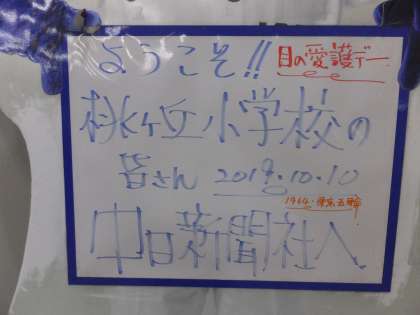 ようこそ!! 目の愛護デー
桃ヶ丘小学校の
皆さん 2019.10.10
1964.東京五輪
中日新聞社へ